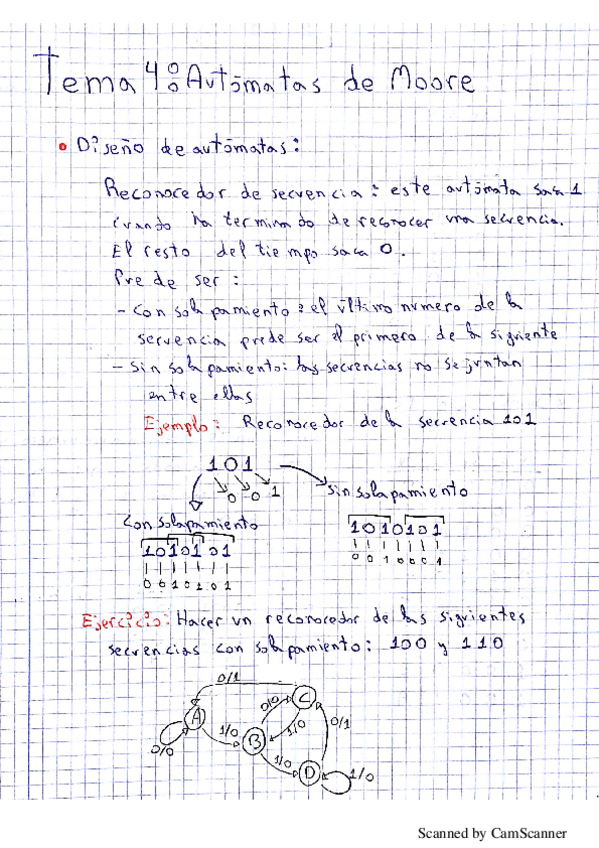 Tema 4: Autómatas de Moore
• Diseño de autómatas:
Reconocedor de secuencia: este autómata saca 1
cuando ha terminado de reconocer una secuencia.
El resto del tiempo saca 0.
Puede ser:
- Con solapamiento: el último numero de la
secuencia puede ser el primero de la siguiente
- Sin solapamiento: las secuencias no se juntan
entre ellas
Ejemplo: Reconocedor de la secuencia 101
101
0 0 1
sin solapamiento
Con solapamiento
1010101
0010001
1010101
0010101
Ejercicio: Hacer un reconocedor de las siguientes
secuencias con solapamiento: 100 y 110
0/1
A
0/0
1/0
B
0/0
C
1/0
0/1
1/0
D
1/0
Scanned by CamScanner